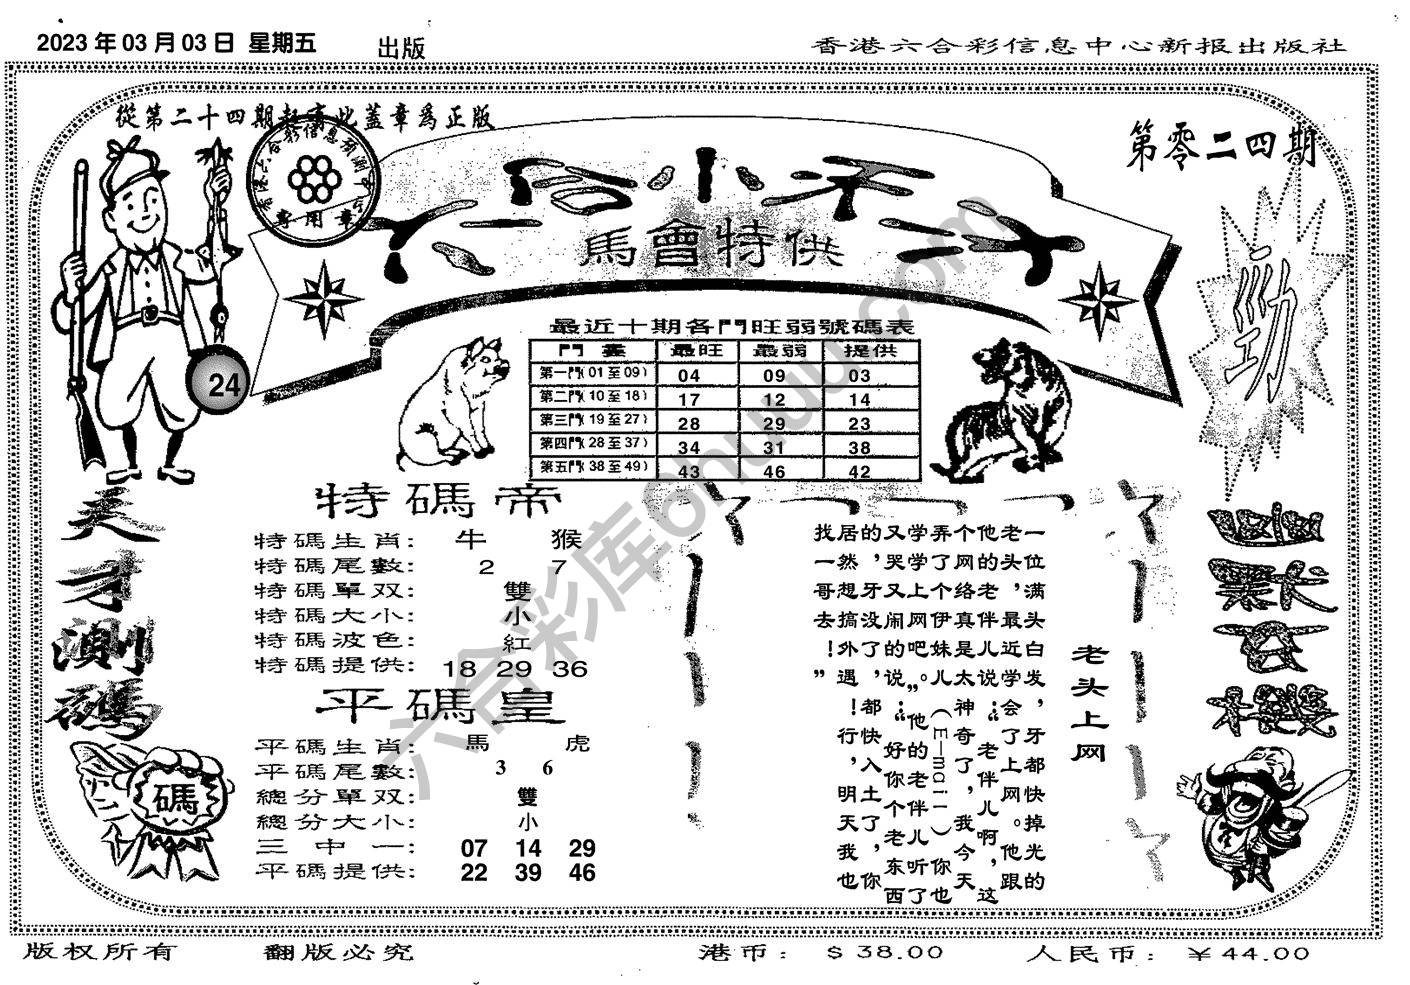 2023 年 03 月 03 日 星期五 出版
香港六合彩信息中心新报出版社
從第二十四期起 此蓋章爲正版
第零二四期
專用章
六合小子
馬會特供
勁
24
最近十期各門旺弱號碼表
門 最旺 最弱 提供
第一門( 01 至 09 ) 04 09 03
第二門( 10 至 18 ) 17 12 14
第三門( 19 至 27 ) 28 29 23
第四門( 28 至 37 ) 34 31 38
第五門( 38 至 49 ) 43 46 42
天才測碼
特碼帝
特碼生肖: 牛 猴
特碼尾數: 2 7
特碼單双: 雙
特碼大小: 小
特碼波色: 紅
特碼提供: 18 29 36
平碼皇
平碼生肖: 馬 虎
平碼尾數: 3 6
總分單双: 雙
總分大小: 小
三中一: 07 14 29
平碼提供: 22 39 46
碼
老头上网
一位满头白发，牙都快掉光的
老头，最近学会了上网。他跟
他的老伴儿说：“老伴儿啊，这
个网络真是太神奇了，我今天
弄了个伊妹儿（E—mail）你也
学学上网吧。”他的老伴儿听了
又哭又闹的说：“好你个老东西
的，牙没了，都快入土了，你
居然想搞外遇！行，明天我也
找一哥去！”
六合彩库6huuu.com
版权所有 翻版必究 港币: $ 38.00 人民币: ￥44.00